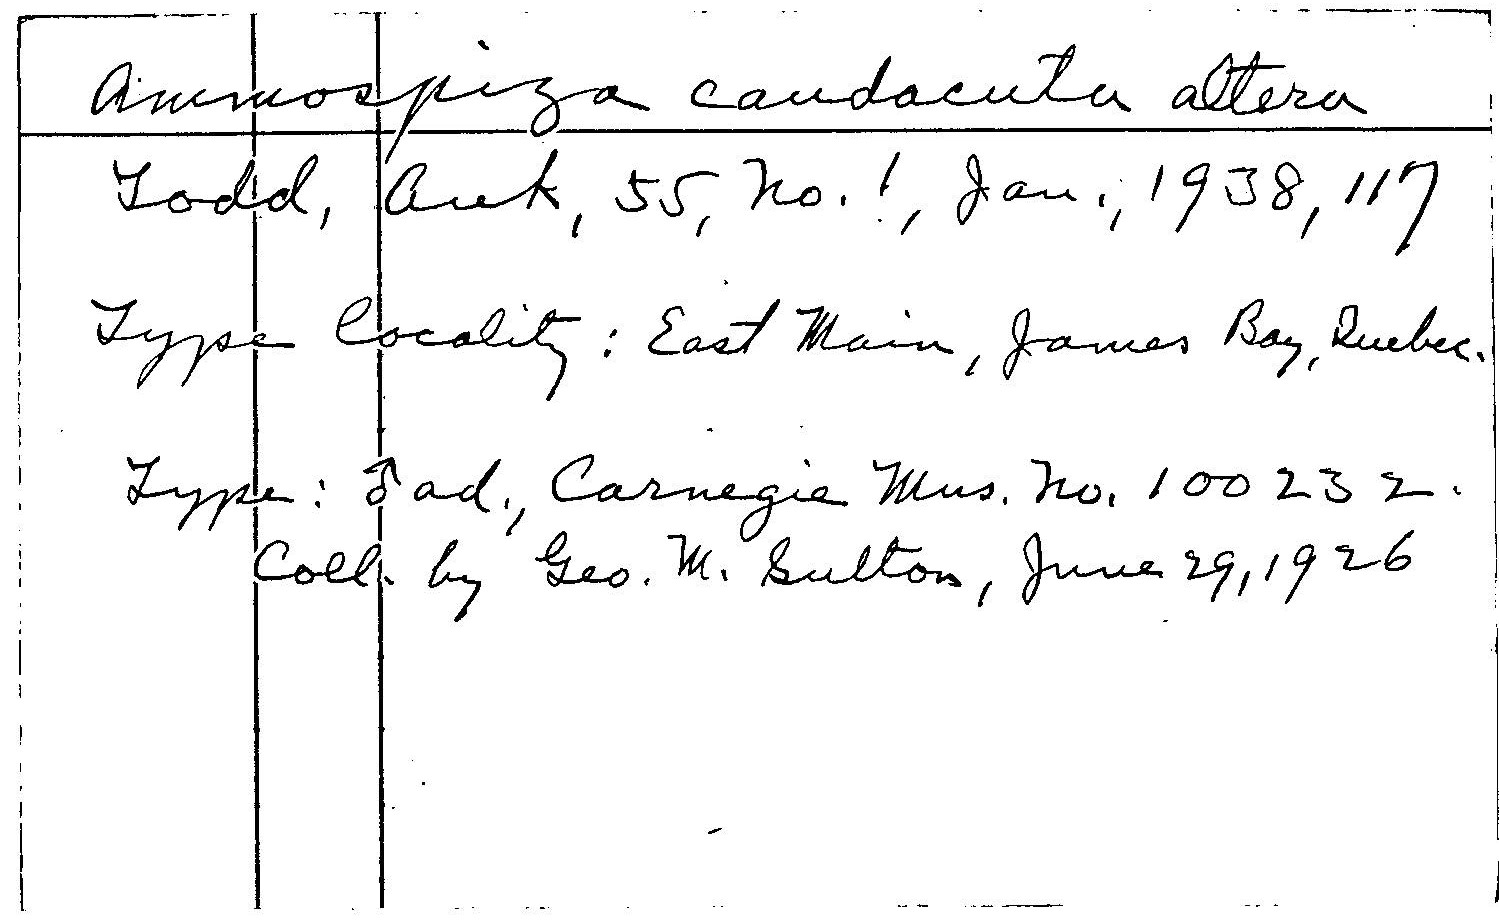 Ammospiza caudacuta altera
Todd, Auk, 55, No. 1, Jan., 1938, 117
Type locality: East Main, James Bay, Quebec.
Type: ♂ ad., Carnegie Mus. No. 100232.
Coll. by Geo. M. Sutton, June 29, 1926